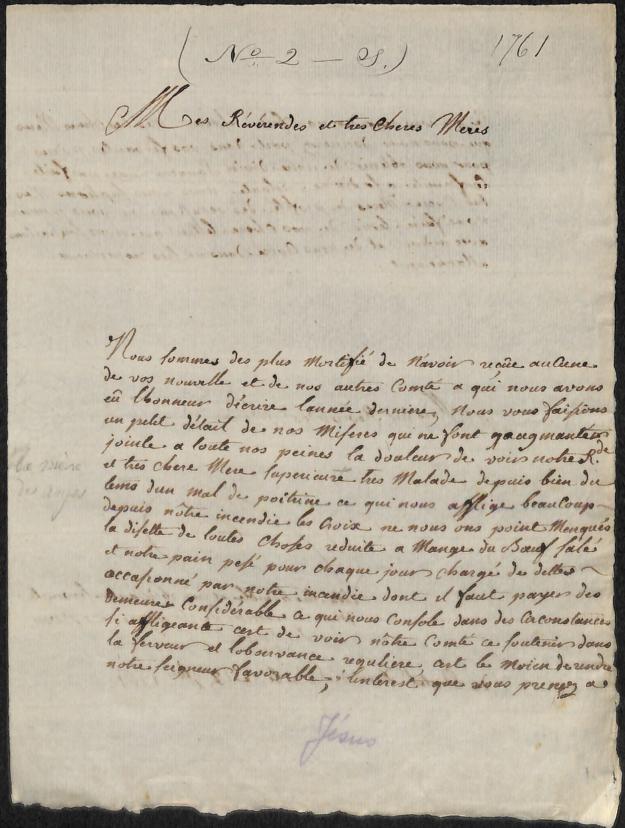 (No 2 — S.) 1761
Mes Révérendes et tres cheres Meres
Nous sommes des plus mortifié de Navoir reçûe aucune
de vos nouvelle et de nos autres Comté a qui nous avons
eû lhonneur décrire lannée derniere, Nous vous faisions
un petit détail de nos Miseres qui ne font quaugmanter
jointe a toute nos peines la douleur de voir nôtre Rde
et tres chere Mere superieure tres Malade depuis bien du
tems dun mal de poitrine ce qui nous afflige beaucoup
depuis nôtre incendie les Croix ne nous ons point Menqués
la disette de toutes choses reduite a Mangé du Bœuf salé
et notre pain pesé pour chaque jour chargé de dettes
occasionné par notre incendie dont il faut payer des
demeures Considérable ce qui nous Console dans des Circonstances
si affligeante cest de voir nôtre Comté ce soutenir dans
la ferveur et lobservance reguliere, cest le Moien de rendre
notre seigneur favorable, linterest que vous prenez a
La mère
des anges
Jésus